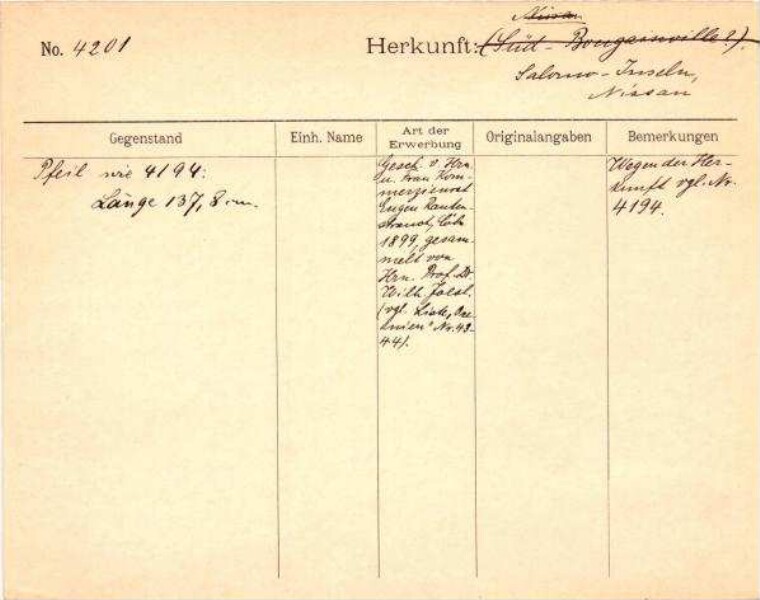 Nissan
No. 4201
Herkunft: (Süd-Bougainville?).
Salomo-Inseln,
Nissan
Gegenstand
Einh. Name
Art der
Erwerbung
Originalangaben
Bemerkungen
Pfeil wie 4194:
Länge 137,8 cm.
Gesch. v. Hrn.
u. Frau Kom-
merzienrat
Eugen Rauten-
strauch, Cöln
1899, gesam-
melt von
Hrn. Prof. Dr.
Wilh. Joest.
(vgl. Liste „Oze-
anien" Nr. 43-
44).
Wegen der Her-
kunft vgl. Nr.
4194.